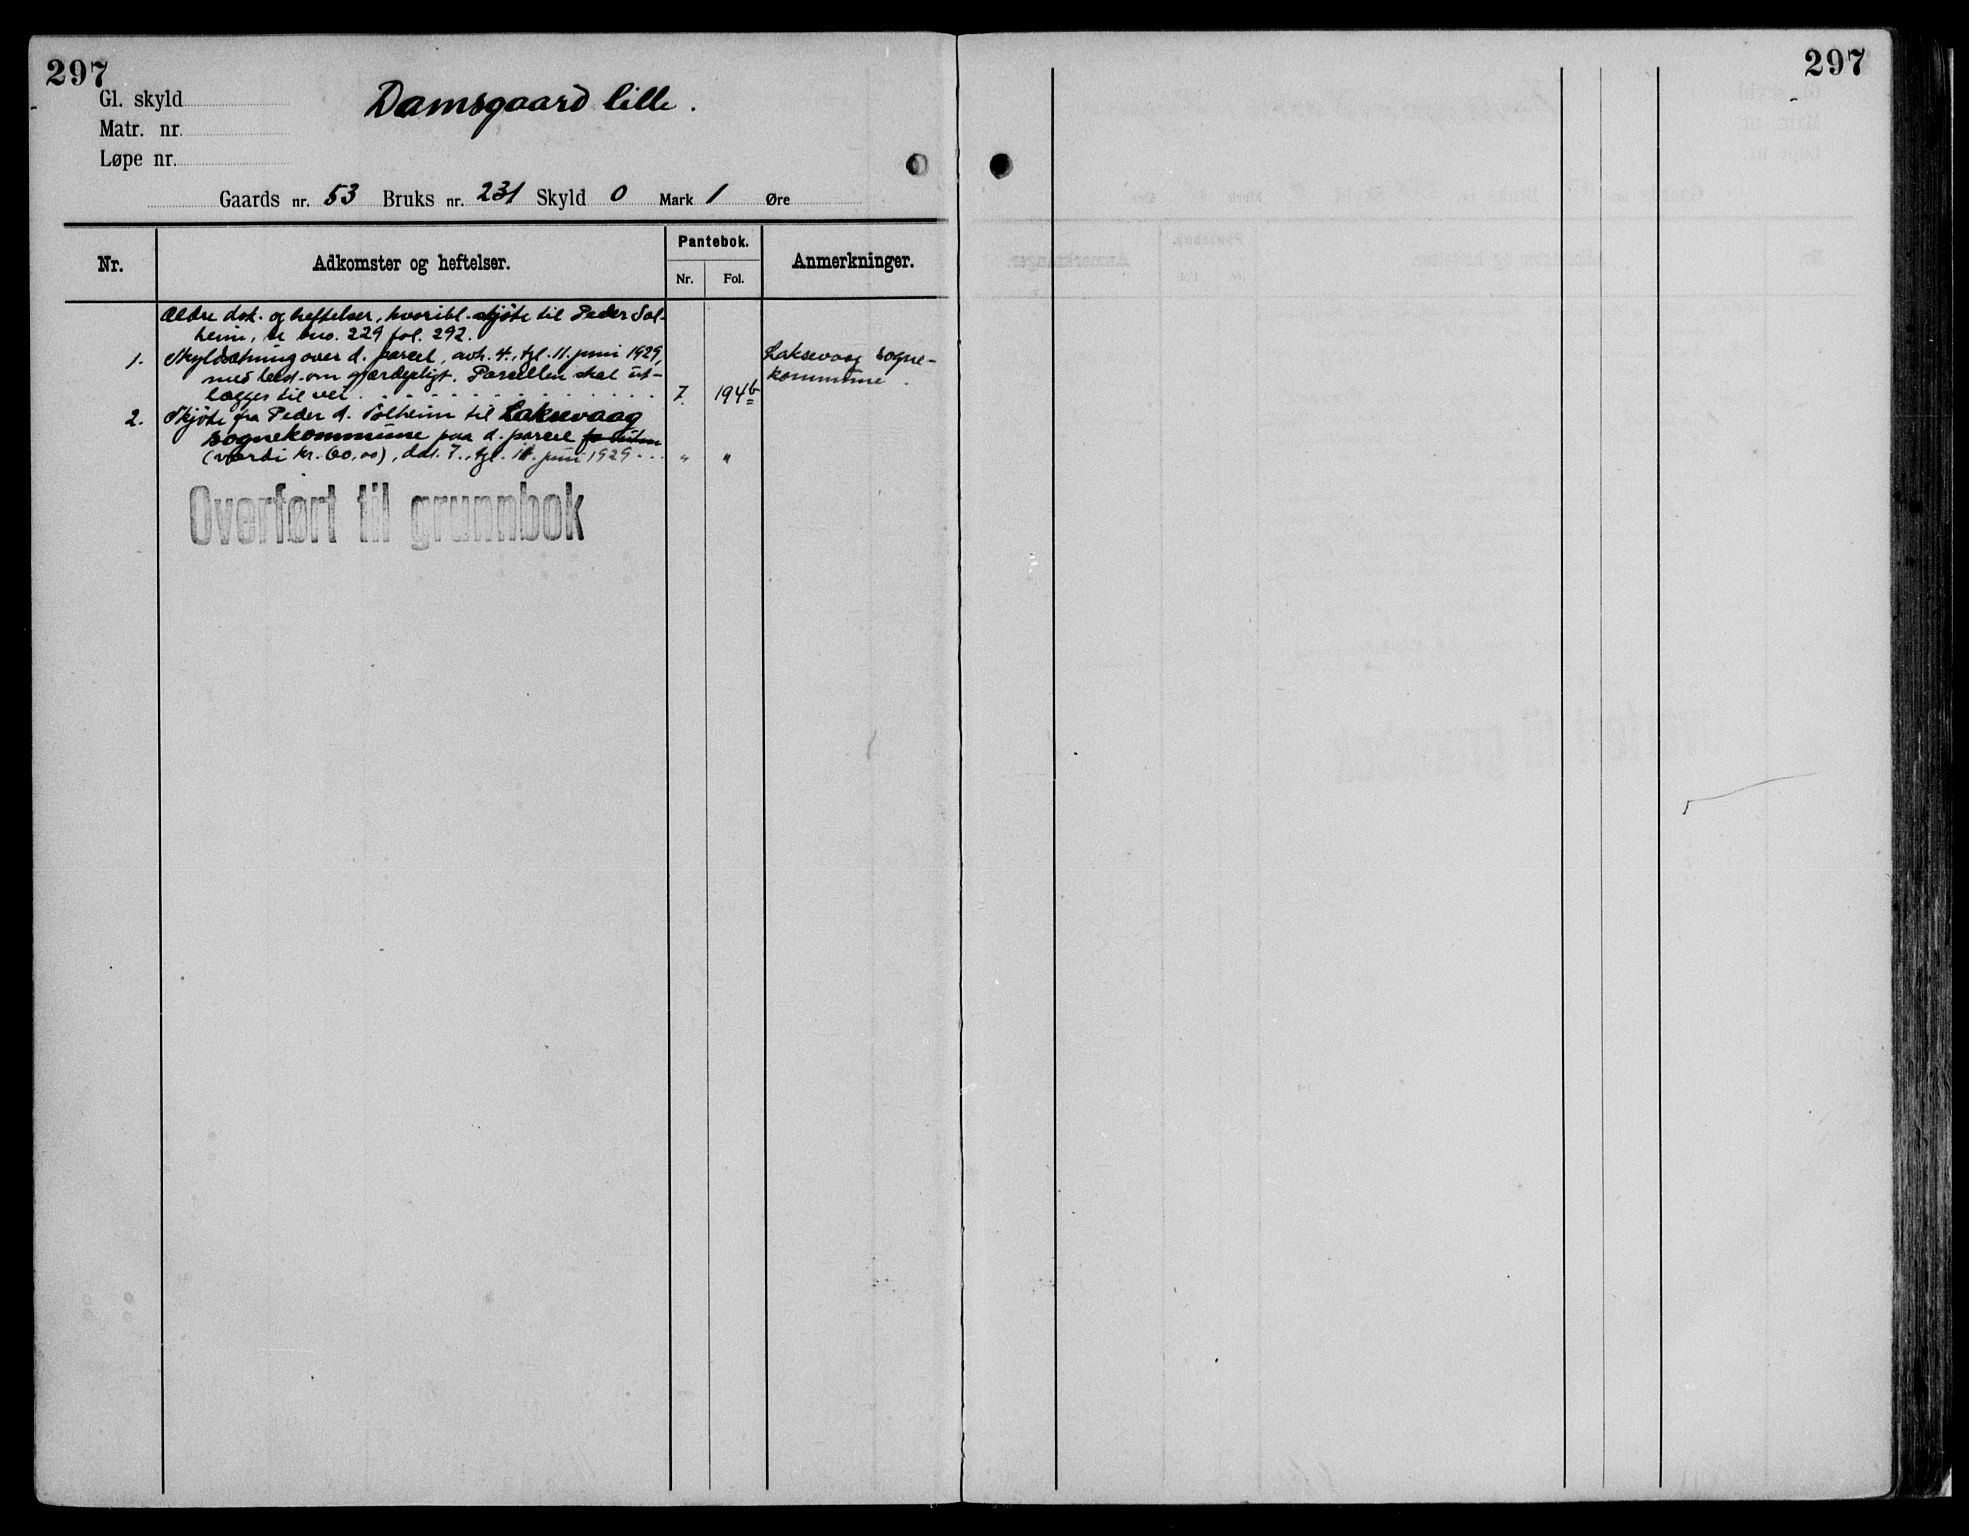 297
Gl. skyld
Damsgaard lille.
Matr. nr.
Løpe nr.
Gaards nr. 53 Bruks nr. 231 Skyld 0 Mark 1 Øre
Nr.
Adkomster og heftelser.
Pantebok.
Nr. Fol.
Anmerkninger.
Ældre dok. og heftelser, hvoribl. skjøte til Peder Sol-
heim, se bno. 229 fol. 292.
1. Skyldsætning over d. parcel, avh. 4., tgl. 11. juni 1929,
med best. om gjærdepligt. Parcellen skal ut-
lægges til vei. 7. 194b
Laksevaag sogne-
kommune.
2. Skjøte fra Peder d. Solheim til Laksevaag
sognekommune paa d. parcel
(værdi kr. 60,00), dat. 7., tgl. 11. juni 1929 " "
Overført til grunnbok
297